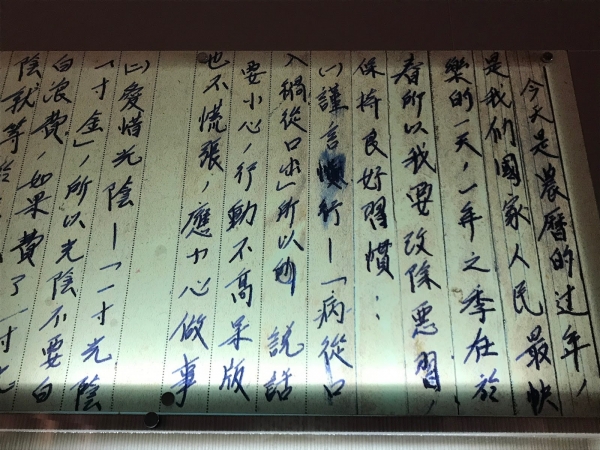 今天是農曆的过年，
是我们國家人民最快
樂的一天，一年之季在於
春所以我要改除惡習，
保持良好習慣：
㈠謹言慎行—「病從口
入禍從口出」所以 説話
要小心，行動不高呆版
也不慌張，應十心做事
㈡愛惜光陰—「一寸光陰
一寸金」，所以光陰不要白
白浪費，如果費了一寸光
陰就等於